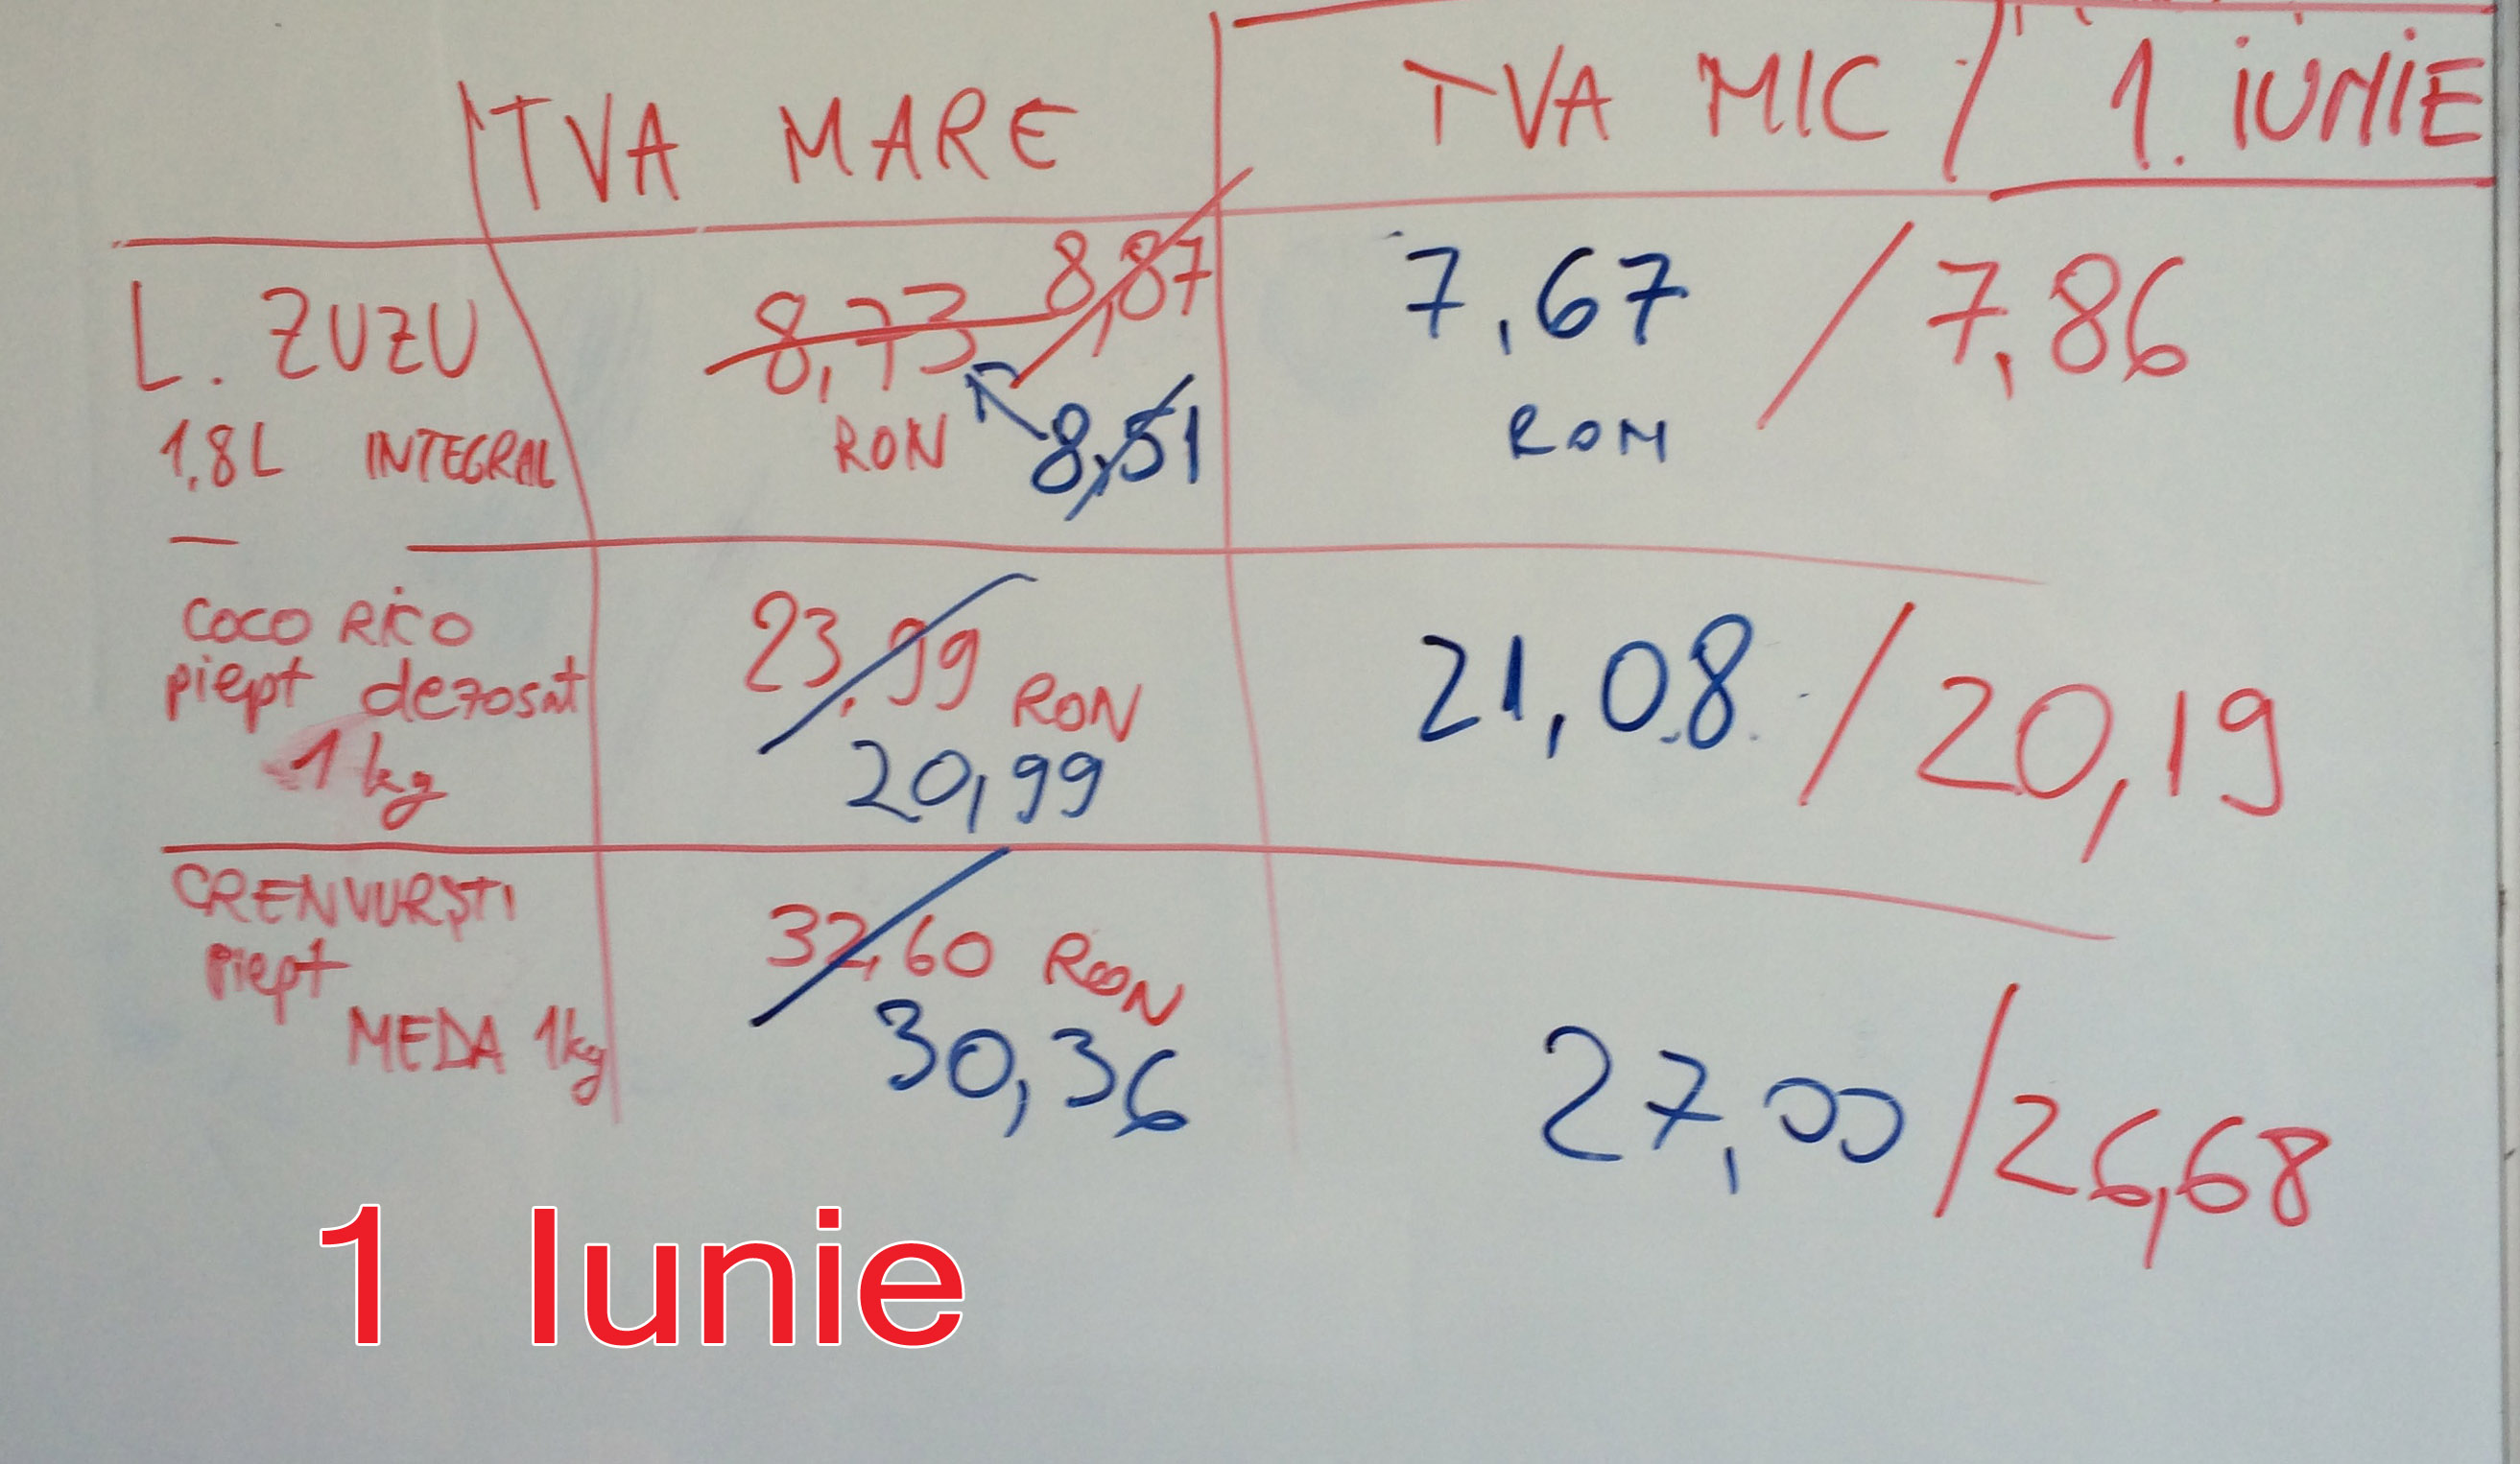 TVA MARE TVA MIC / 1. IUNIE
L. ZUZU 8,73 8,87 7,67 / 7,86
1,8L INTEGRAL RON 8,51 RON
COCO RICO 23,99 RON 21,08 / 20,19
piept dezosat 20,99
1 kg
CRENVURȘTI 32,60 RON 27,00 / 26,68
piept 30,36
MEDA 1kg
1 Iunie